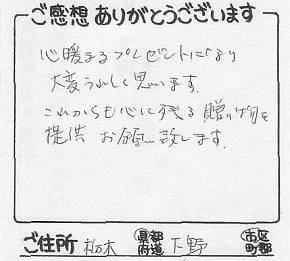 ご感想ありがとうございます
心暖まるプレゼントになり
大変うれしく思います。
これからも心に残る贈り物を
提供 お願い致します。
ご住所 栃木 都道府県 下野 市区町郡